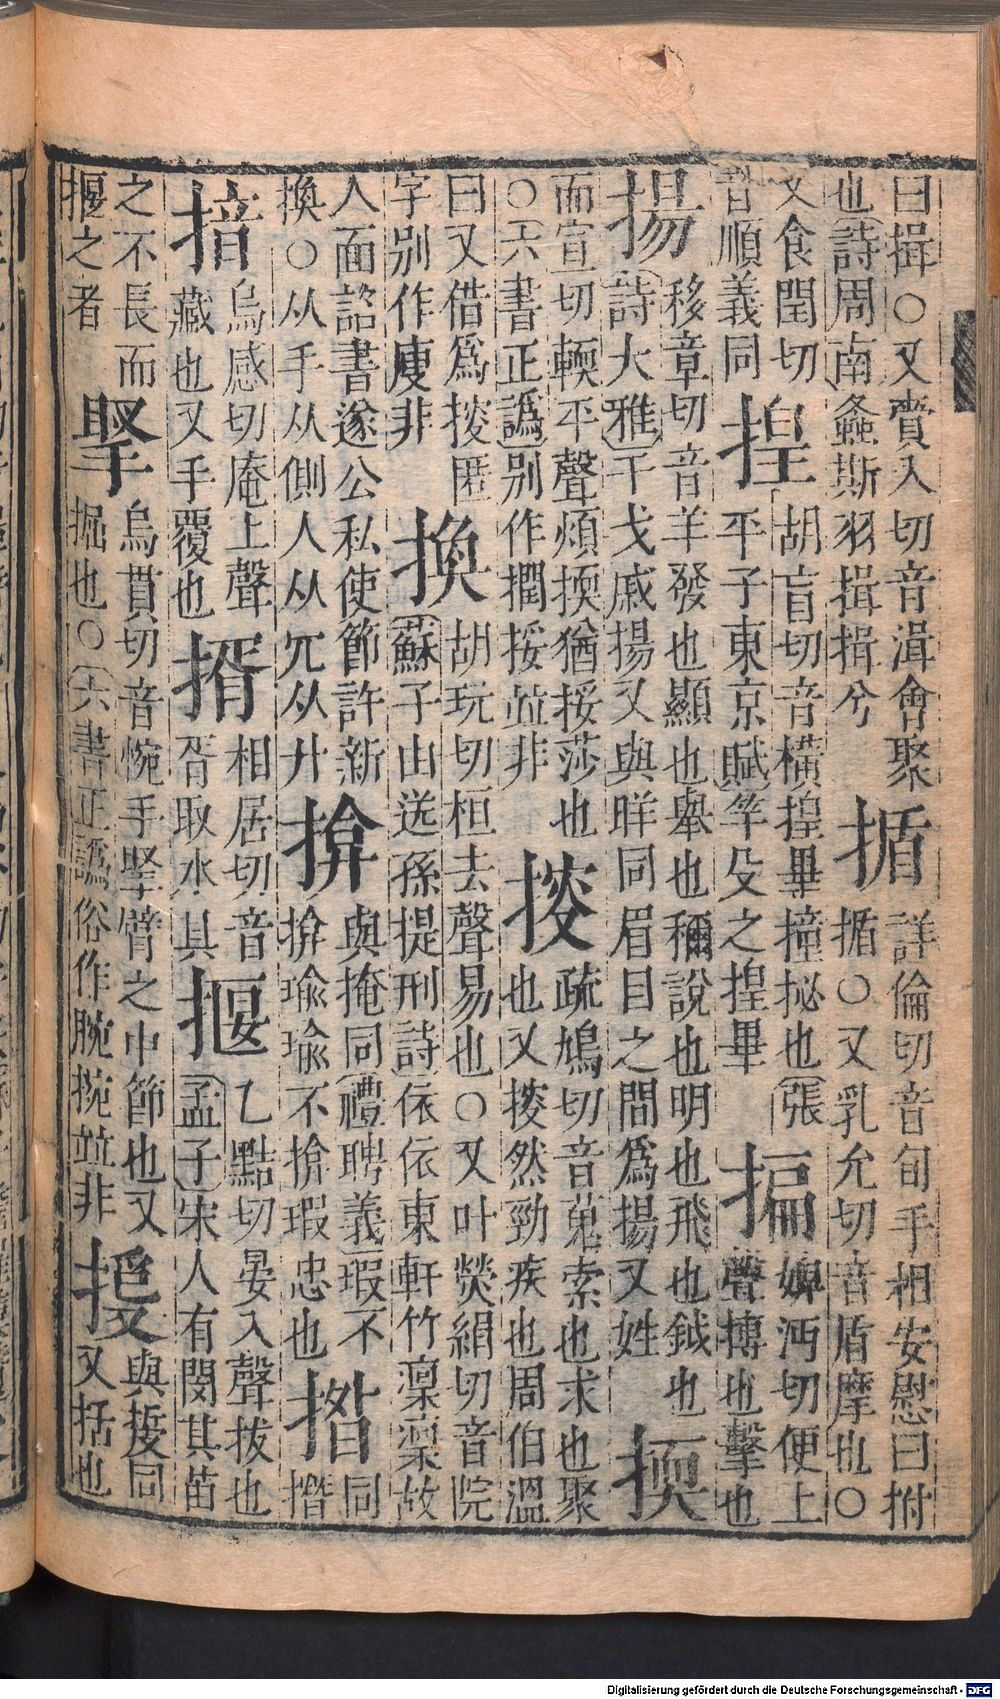 曰揖○又賷入切音湒會聚
也詩周南螽斯羽揖揖兮
揗
詳倫切音旬手相安慰曰拊
揗○又乳允切音盾摩也○
又食閏切
音順義同
揘
胡盲切音橫揘畢撞拯也張
平子東京賦竿殳之揘畢
揙
婢沔切便上
聲搏也擊也
揚
移章切音羊發也顯也舉也稱說也明也飛也鉞也
詩大雅干戈戚揚又與眻同眉目之間爲揚又姓
揙
而宣切輭平聲煩撋猶挼莎也
○六書正譌別作撋挼並非
揫
疏鳩切音蒐索也求也聚
也又㨃然勁疾也周伯溫
曰又借爲㨃匿
換
胡玩切桓去聲易也○又叶熒絹切音院
蘇子由送孫提刑詩依依東軒竹凜凜故
人面諮書遂公私使節許新
字別作廋非
換○从手从側人从冗从廾
揜
與掩同禮聘義瑕不
揜瑜瑜不揜瑕忠也
揝
同
撍
揞
烏感切庵上聲
藏也又手覆也
揟
相居切音
胥取水具
揠
乙黠切晏入聲拔也
孟子宋人有閔其苗
之不長而
揠之者
掔
烏貫切音惋手掔臂之中節也又
掘也○六書正譌俗作腕捥並非
援
與援同
又括也
Digitalisierung gefördert durch die Deutsche Forschungsgemeinschaft - DFG